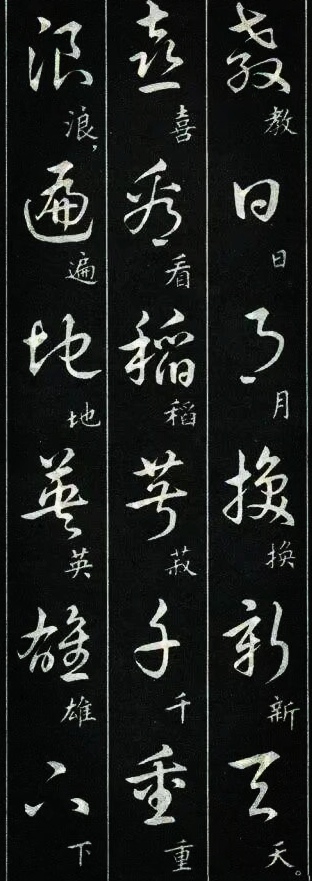 教日月换新天
教日月换新天。
喜看稻菽千重
喜看稻菽千重
浪遍地英雄下
浪,遍地英雄下